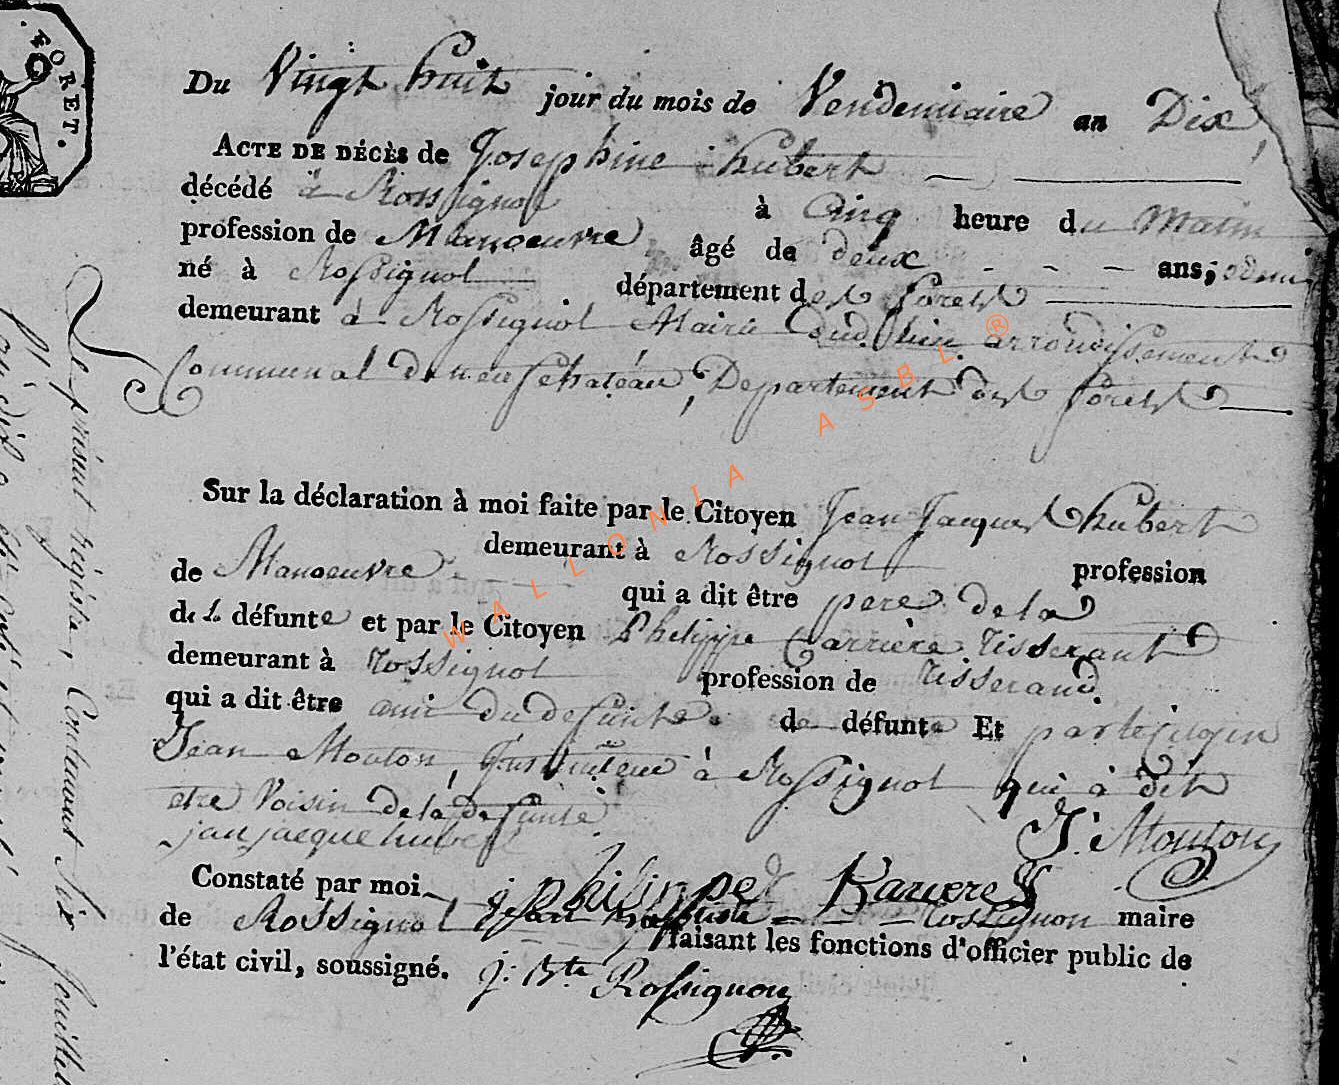 FORET.
Du Vingt huit jour du mois de Vendemiaire an Dix
ACTE DE DÉCÈS de Josephine hubert
décédé à Rossignol à Cinq heure du Matin
profession de Manoeuvre âgé de deux ans; demi
né à Rossignol département des forets
demeurant à Rossignol Mairie dudit lieu arrondissement
Communal de neufchateau, Departement des forets
Sur la déclaration à moi faite par le Citoyen Jean Jacques hubert
demeurant à Rossignol profession
de Manoeuvre qui a dit être pere de la
de la défunte et par le Citoyen Philippe Carrière tisserant
demeurant à Rossignol profession de tisserand
qui a dit être ami du defunte de défunte Et par le Citoyen
Jean Mouton, Instituteur à Rossignol qui à dit
etre Voisin de la defunte
jan jacque hubert J: Mouton
Constaté par moi philippe Kariere
de Rossignol Jean baptiste Rossignon maire
faisant les fonctions d'officier public de
l'état civil, soussigné. J: Bte Rossignon
Le présent régistre, Contenant Six feuillets
WALLONIA ASBL ®